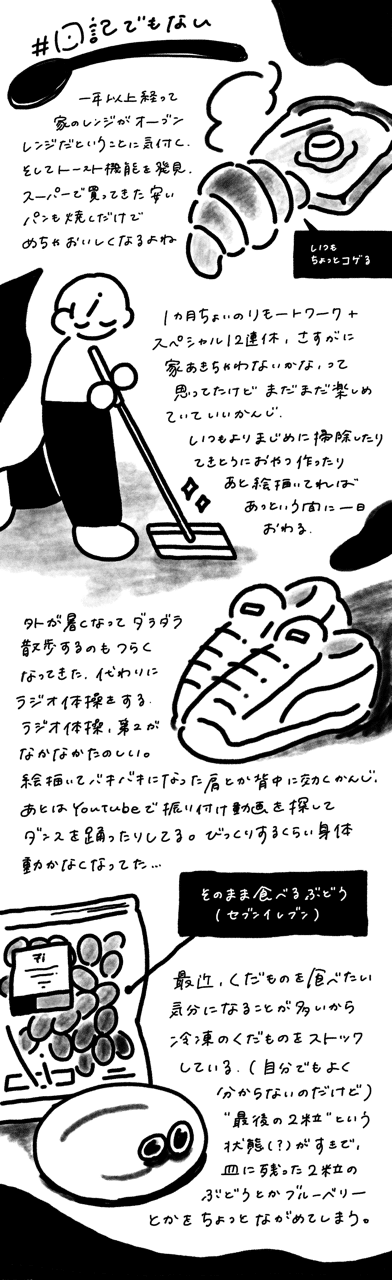 #日記でもない
一年以上経って
家のレンジがオーブン
レンジだということに気付く.
そしてトースト機能を発見.
スーパーで買ってきた安い
パンも焼くだけで
めちゃおいしくなるよね
いつも
ちょっとコゲる
1カ月ちょいのリモートワーク+
スペシャル12連休, さすがに
家あきちゃわないかな, って
思ってたけど まだまだ楽しめ
ていていいかんじ.
いつもよりまじめに掃除したり
てきとうにおやつ作ったり
あと絵描いてれば
あっという間に一日
おわる.
外が暑くなって ダラダラ
散歩するのもつらく
なってきた. 代わりに
ラジオ体操をする.
ラジオ体操, 第2が
なかなかたのしい。
絵描いてバキバキになった肩とか背中に効くかんじ.
あとはYoutubeで振り付け動画を探して
ダンスを踊ったりしてる。びっくりするくらい身体
動かなくなってた…
そのまま食べるぶどう
(セブンイレブン)
最近, くだものを食べたい
気分になることが多いから
冷凍のくだものをストック
している. (自分でもよく
分からないのだけど)
"最後の2粒"という
状態(?)がすきで,
皿に残った2粒の
ぶどうとかブルーベリー
とかをちょっとながめてしまう。